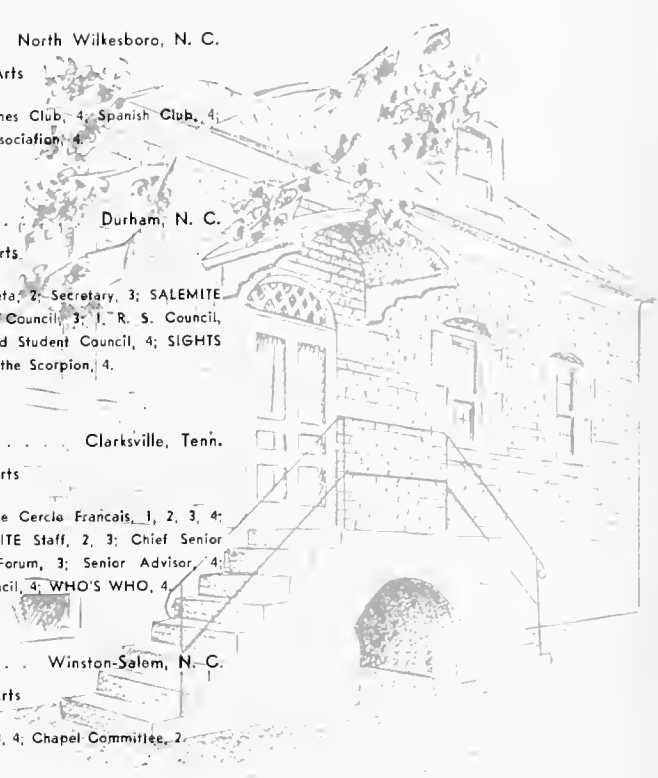 North Wilkesboro, N. C.
Arts
nes Club, 4; Spanish Club, 4;
sociation, 4.
. Durham, N. C.
rts
eta, 2; Secretary, 3; SALEMITE
Council, 3; I. R. S. Council,
d Student Council, 4; SIGHTS
the Scorpion, 4.
. . . . . Clarksville, Tenn.
rts
e Cercle Francais, 1, 2, 3, 4;
ITE Staff, 2, 3; Chief Senior
Forum, 3; Senior Advisor, 4;
cil, 4; WHO'S WHO, 4.
. . Winston-Salem, N. C.
rts
, 4; Chapel Committee, 2.